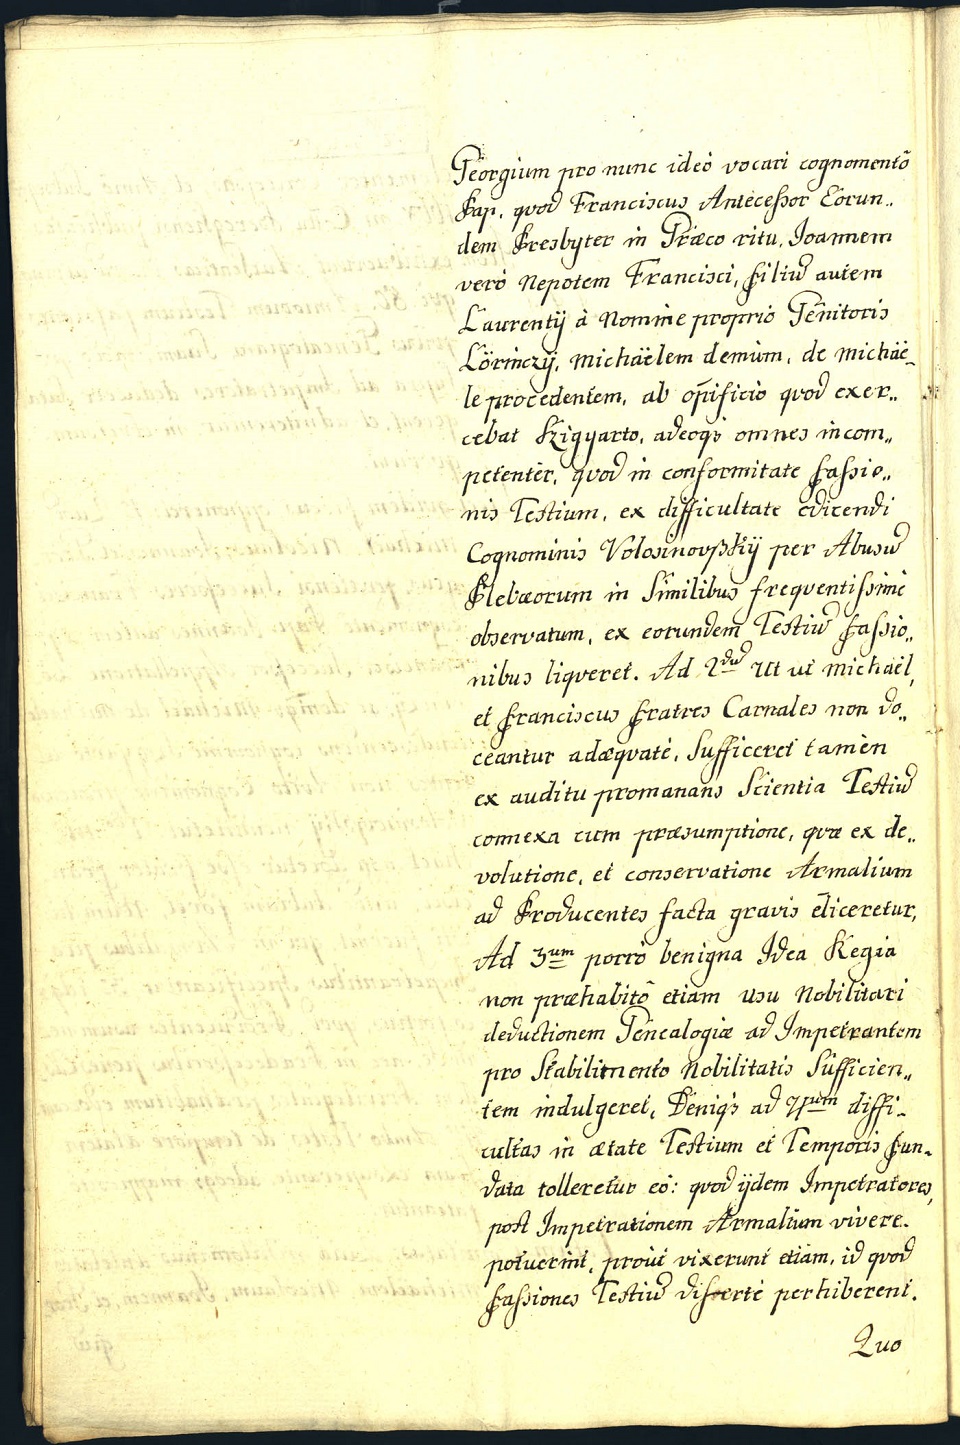 Georgium pro nunc ideò vocari cognomentô
Pap, quod Franciscus Antecessor Eorun„
dem Presbyter in Græco ritu, Joannem
verò Nepotem Francisci, filiũ autem
Laurentÿ à Nomine proprio Genitoris
Lörinczÿ, Michäëlem demùm, de Michäë„
le procedentem, ab opificiô quod exer„
cebat Szigyarto, adeoqs omnes incom„
petentèr, quod in conformitate fassio„
nis Testium, ex difficultate edicendi
Cognominis Volosinovszkÿ per Abusũ
Plebæorum in Similibus frequentissimè
observatum, ex eorundem Testiũ fassio„
nibus liqveret. Ad 2dũ Ut ut Michaël,
et Franciscus Fratres Carnales non do„
ceantur adæqvatè, Sufficeret tamèn
ex auditu promanans Scientia Testiũ
connexa cum præsumptione, quæ ex de„
volutione, et conservatione Armalium
ad Producentes facta gravis eliceretur,
Ad 3um porrò benigna Idea Regia
non præhabitô etiam usu Nobilitari
deductionem Genealogiæ ad Impetrantem
pro Stabilimento Nobilitatis Sufficien„
tem indulgeret, Deniqs ad 4um diffi„
cultas in ætate Testium et Temporis fun„
data tolleretur eô: quod ijdem Impetratores,
post Impetrationem Armalium vivere
potuerint, proùt vixerunt etiam, id quod
fassiones Testiũ disertè perhiberent.
Quo